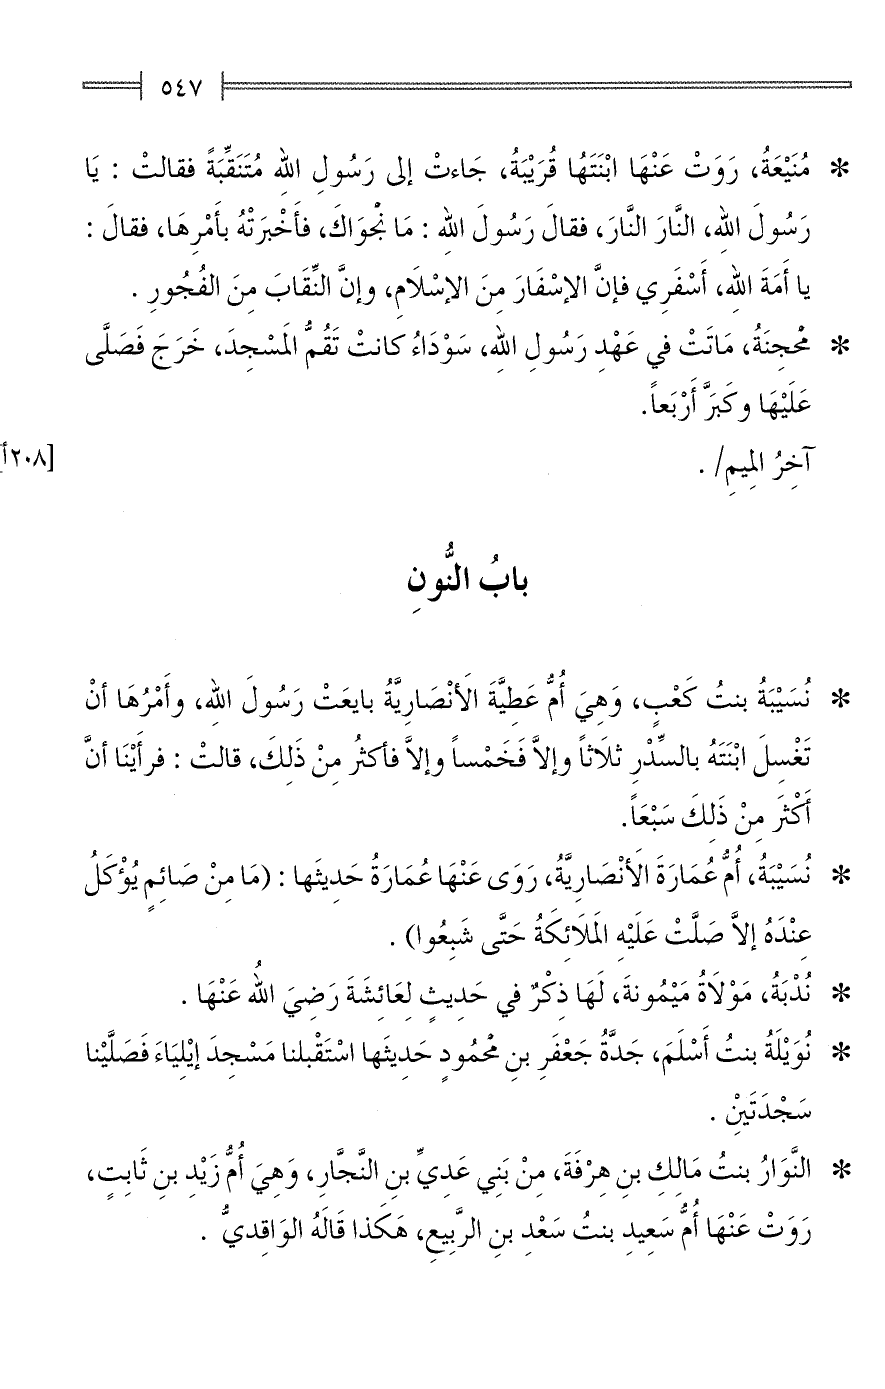 ٥٤٧
* مُنَيْعَةُ، رَوَتْ عَنْهَا ابْنَتَهَا قُرَيْبَةُ، جَاءتْ إلى رَسُولِ اللهِ مُتَنَقِّبَةً فقالتْ : يَا
رَسُولَ اللهِ، النَّارَ النَّارَ، فقالَ رَسُولَ اللهِ : مَا نْجْوَاكَ، فأَخْبَرَتْهُ بأَمْرِهَا، فقالَ :
يا أَمَةَ اللهِ، أَسْفَرِي فإنَّ الإسْفَارَ مِنَ الإسْلَامِ، وإنَّ النِّقَابَ مِنَ الفُجُورِ .
* مْحْجِنَةُ، مَاتَتْ في عَهْدِ رَسُولِ اللهِ، سَوْدَاءُ كانتْ تَقُمُّ المَسْجِدَ، خَرَجَ فَصَلَّى
عَلَيْهَا وكَبَّرَ أَرْبَعاً.
آخِرُ المِيمِ/ .
[٢٠٨أ]
بابُ النُّونِ
* نُسَيْبَةُ بنتُ كَعْبٍ، وَهِيَ أُمُّ عَطِيَّةَ الأَنْصَارِيَّةُ بايعَتْ رَسُولَ اللهِ، وأَمْرُهَا أنْ
تَغْسِلَ ابْنَتَهُ بالسِّدْرِ ثلَاثاً وإلاَّ فَخَمْساً وإلاَّ فأكثرُ مِنْ ذَلِكَ، قالتْ : فرأَيْنَا أنَّ
أَكْثَرَ مِنْ ذَلِكَ سَبْعَاً.
* نُسَيْبَةُ، أُمُّ عُمَارَةَ الأَنْصَارِيَّةُ، رَوَى عَنْهَا عُمَارَةُ حَدِيثَها : (مَا مِنْ صَائِمٍ يُؤْكَلُ
عِنْدَهُ إلاَّ صَلَّتْ عَلَيْهِ المَلَائِكَةُ حَتَّى شَبِعُوا) .
* نُدْبَةُ، مَوْلَاةُ مَيْمُونةَ، لَهَا ذِكْرٌ في حَدِيثٍ لِعَائِشَةَ رَضِيَ اللهُ عَنْهَا .
* نُوَيْلَةُ بنتُ أَسْلَمَ، جَدَّةُ جَعْفَرِ بنِ مْحْمُودٍ حَدِيثَها اسْتَقْبلنا مَسْجِدَ إيْلِيَاءَ فَصَلَّيْنا
سَجْدَتَيْنِ .
* النَّوَارُ بنتُ مَالِكِ بنِ هِرْفَةَ، مِنْ بَنِي عَدِيِّ بنِ النَّجَّارِ، وَهِيَ أُمُّ زَيْدِ بنِ ثَابِتٍ،
رَوَتْ عَنْهَا أُمُّ سَعِيدِ بنتُ سَعْدِ بنِ الرَّبِيعِ، هَكَذا قَالَهُ الوَاقِدِيُّ .